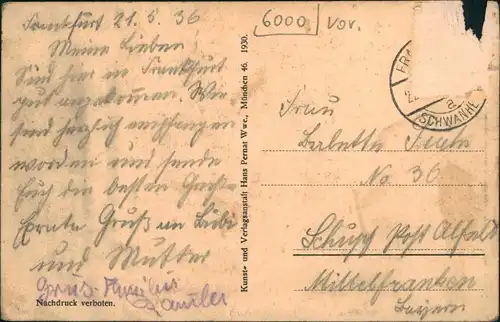 Frankfurt 21.8.36
Meine Lieben
Sind hier in Frankfurt
gut angekommen. Wir
sind herzlich empfangen
worden und sende
Euch die besten Grüße
Gruß an
und Mutter
Gruß Familie
Nachdruck verboten.
Kunst- und Verlagsanstalt Hans Pernat Wwe., München 46. 1930.
6000 Vor.
FR
SCHWANHE
a
Frau
Babette
No 36
Post
Mittelfranken
Bayern